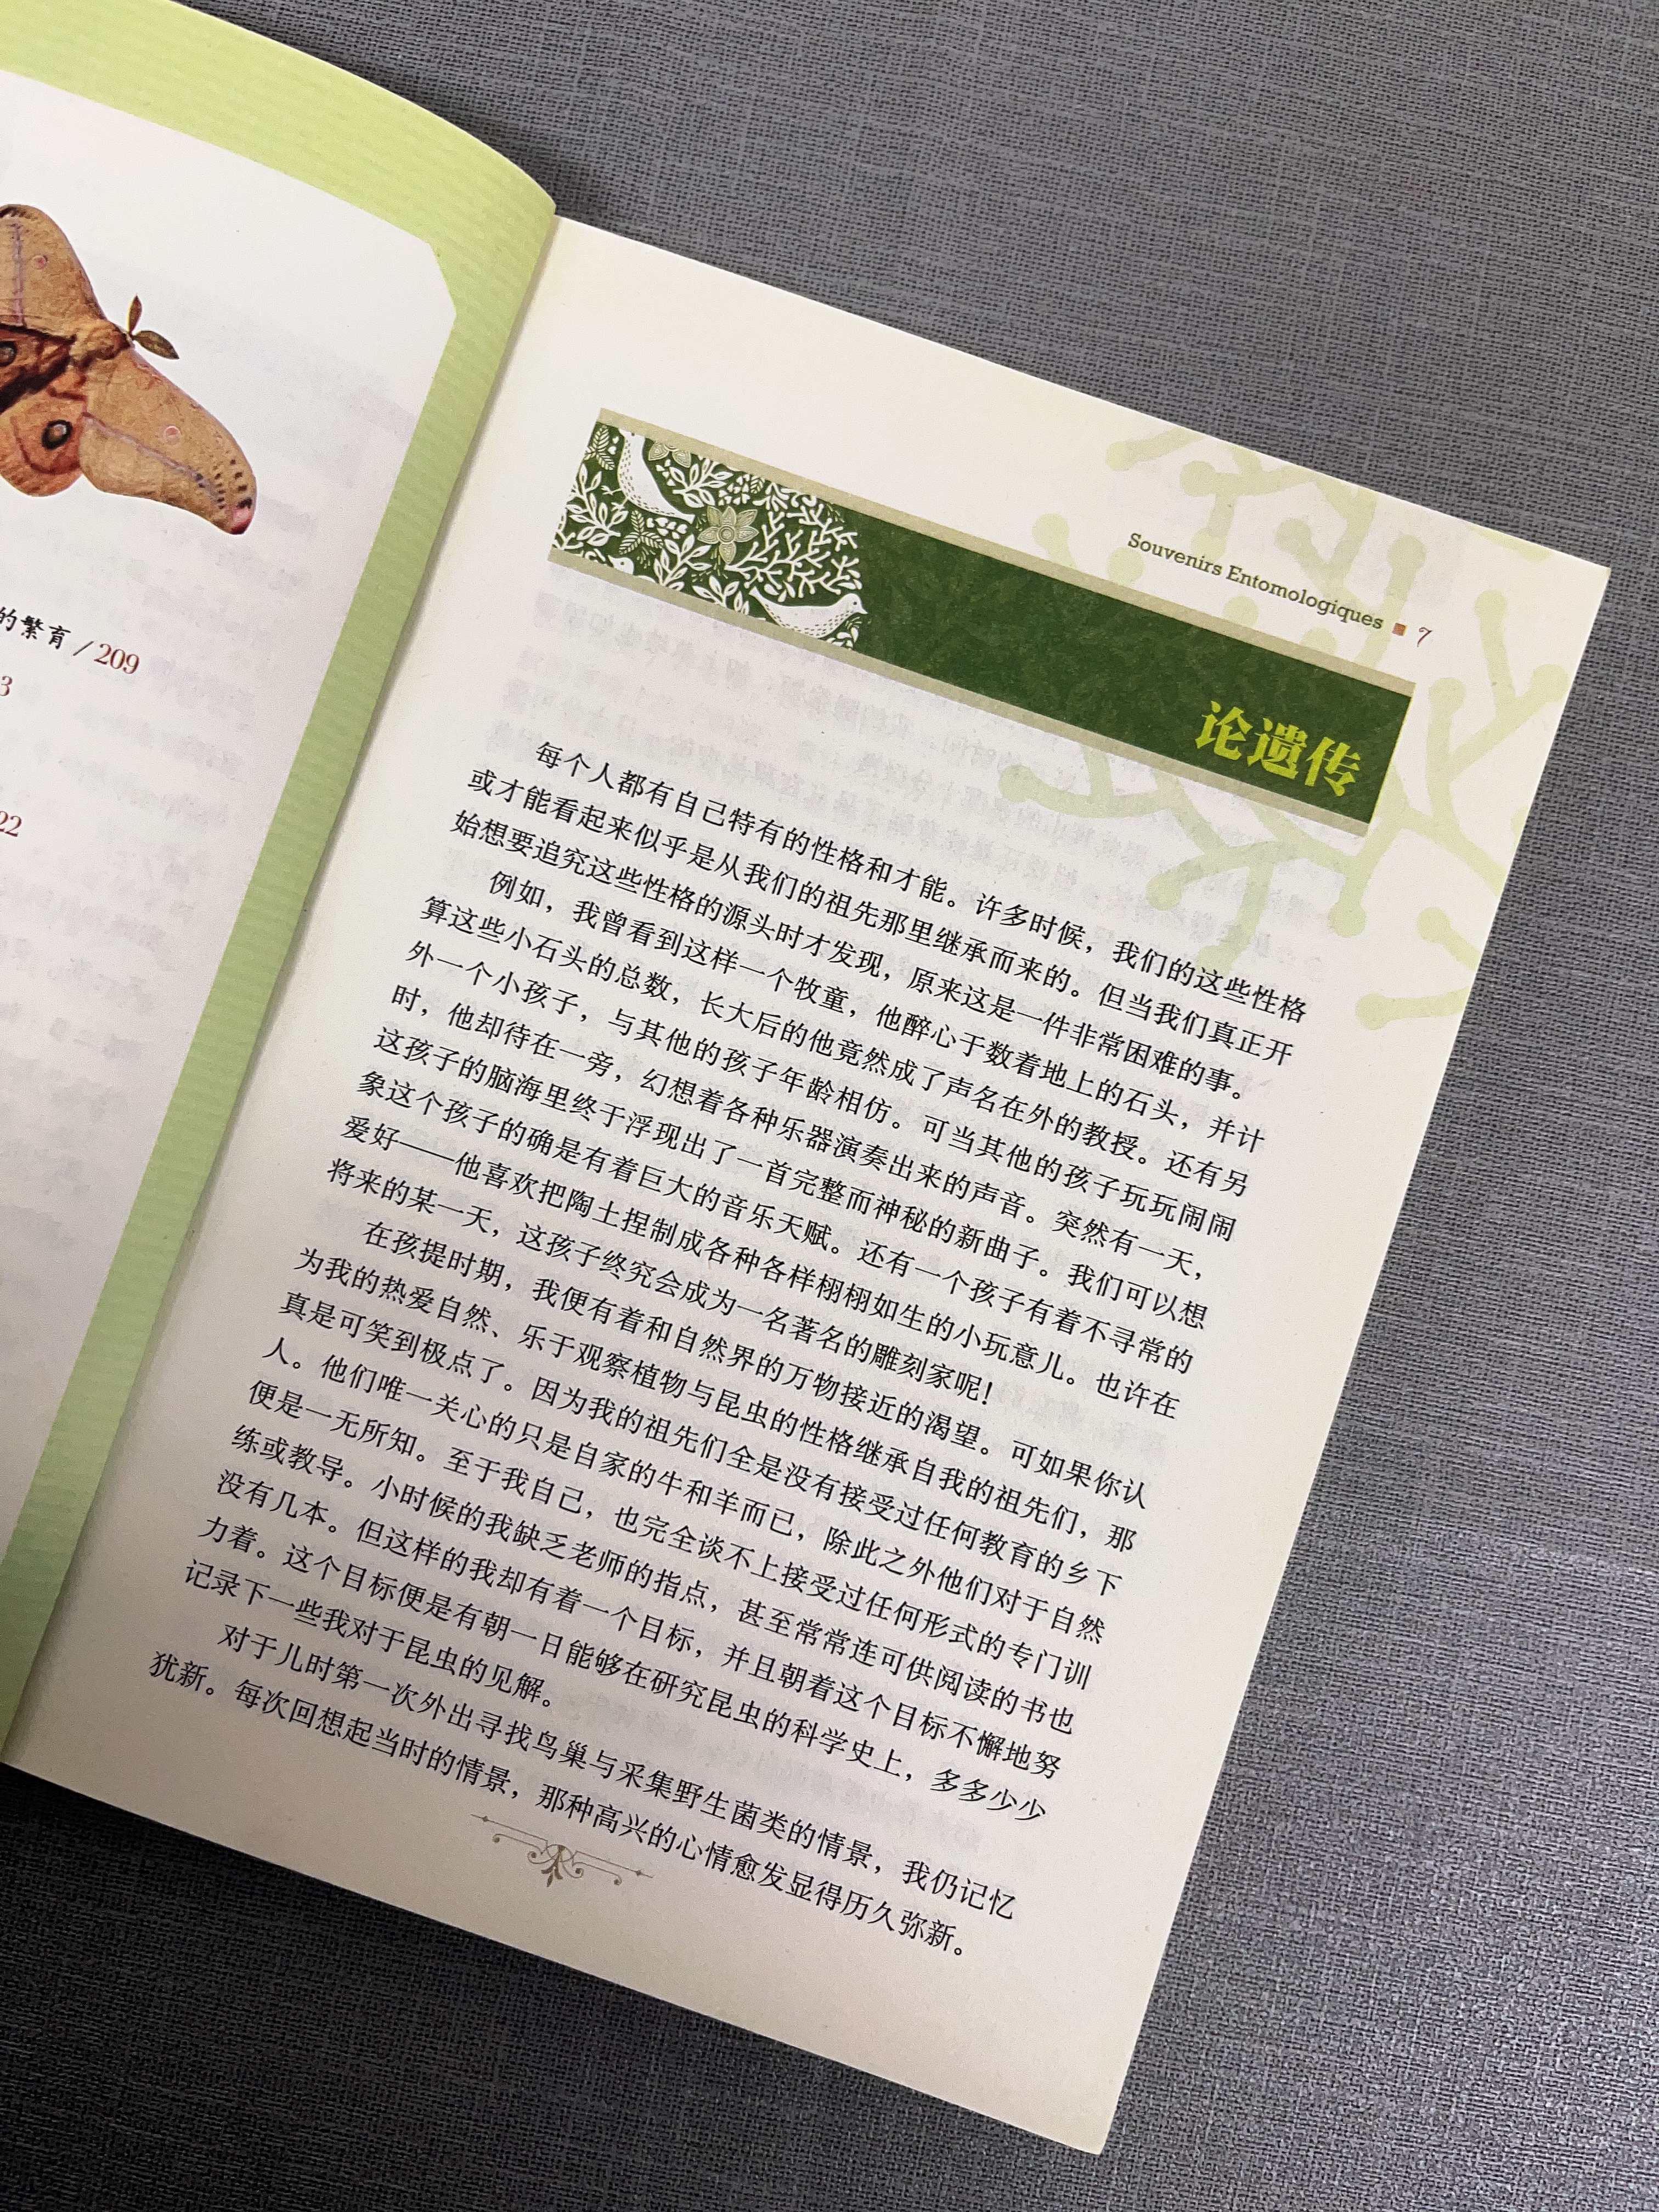 的繁育 / 209
3
22
Souvenirs Entomologiques ■ 7
论遗传
每个人都有自己特有的性格和才能。许多时候，我们的这些性格
或才能看起来似乎是从我们的祖先那里继承而来的。但当我们真正开
始想要追究这些性格的源头时才发现，原来这是一件非常困难的事。
例如，我曾看到这样一个牧童，他醉心于数着地上的石头，并计
算这些小石头的总数，长大后的他竟然成了声名在外的教授。还有另
外一个小孩子，与其他的孩子年龄相仿。可当其他的孩子玩玩闹闹
时，他却待在一旁，幻想着各种乐器演奏出来的声音。突然有一天，
这孩子的脑海里终于浮现出了一首完整而神秘的新曲子。我们可以想
象这个孩子的确是有着巨大的音乐天赋。还有一个孩子有着不寻常的
爱好——他喜欢把陶土捏制成各种各样栩栩如生的小玩意儿。也许在
将来的某一天，这孩子终究会成为一名著名的雕刻家呢！
在孩提时期，我便有着和自然界的万物接近的渴望。可如果你认
为我的热爱自然、乐于观察植物与昆虫的性格继承自我的祖先们，那
真是可笑到极点了。因为我的祖先们全是没有接受过任何教育的乡下
人。他们唯一关心的只是自家的牛和羊而已，除此之外他们对于自然
便是一无所知。至于我自己，也完全谈不上接受过任何形式的专门训
练或教导。小时候的我缺乏老师的指点，甚至常常连可供阅读的书也
没有几本。但这样的我却有着一个目标，并且朝着这个目标不懈地努
力着。这个目标便是有朝一日能够在研究昆虫的科学史上，多多少少
记录下一些我对于昆虫的见解。
对于儿时第一次外出寻找鸟巢与采集野生菌类的情景，我仍记忆
犹新。每次回想起当时的情景，那种高兴的心情愈发显得历久弥新。